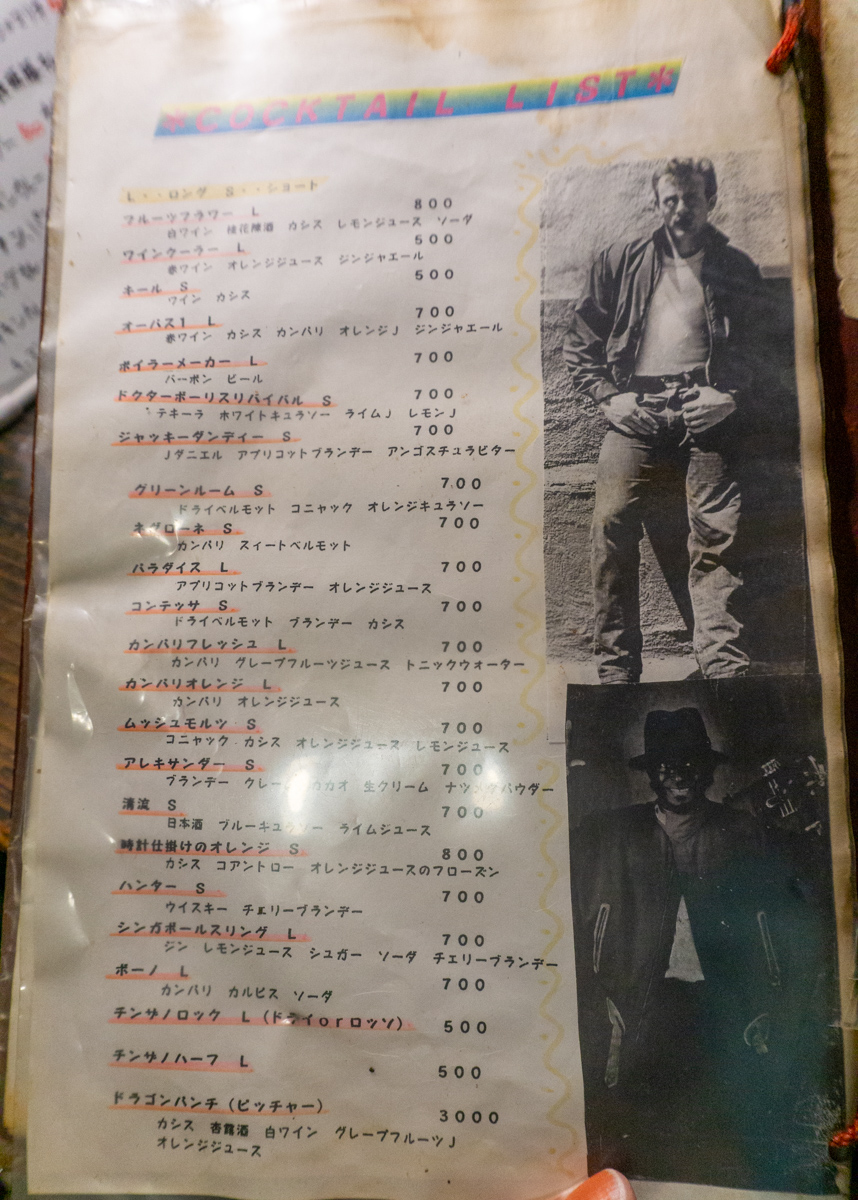 *COCKTAIL LIST*
L・・ロング S・・ショート
フルーツフラワー L 800
白ワイン 桂花陳酒 カシス レモンジュース ソーダ
ワインクーラー L 500
赤ワイン オレンジジュース ジンジャエール
キール S 500
ワイン カシス
オーパス1 L 700
赤ワイン カシス カンパリ オレンジJ ジンジャエール
ボイラーメーカー L 700
バーボン ビール
ドクターボーリスリバイバル S 700
テキーラ ホワイトキュラソー ライムJ レモンJ
ジャッキーダンディー S 700
Jダニエル アプリコットブランデー アンゴスチュラビター
グリーンルーム S 700
ドライベルモット コニャック オレンジキュラソー
ネグローネ S 700
カンパリ スィートベルモット
パラダイス L 700
アプリコットブランデー オレンジジュース
コンテッサ S 700
ドライベルモット ブランデー カシス
カンパリフレッシュ L 700
カンパリ グレープフルーツジュース トニックウォーター
カンパリオレンジ L 700
カンパリ オレンジジュース
ムッシュモルツ S 700
コニャック カシス オレンジジュース レモンジュース
アレキサンダー S 700
ブランデー クレーム カカオ 生クリーム ナツメグパウダー
清流 S 700
日本酒 ブルーキュラソー ライムジュース
時計仕掛けのオレンジ S 800
カシス コアントロー オレンジジュースのフローズン
ハンター S 700
ウイスキー チェリーブランデー
シンガポールスリング L 700
ジン レモンジュース シュガー ソーダ チェリーブランデー
ボーノ L 700
カンパリ カルピス ソーダ
チンザノロック L (ドライorロッソ) 500
チンザノハーフ L 500
ドラゴンパンチ (ピッチャー) 3000
カシス 杏露酒 白ワイン グレープフルーツJ
オレンジジュース